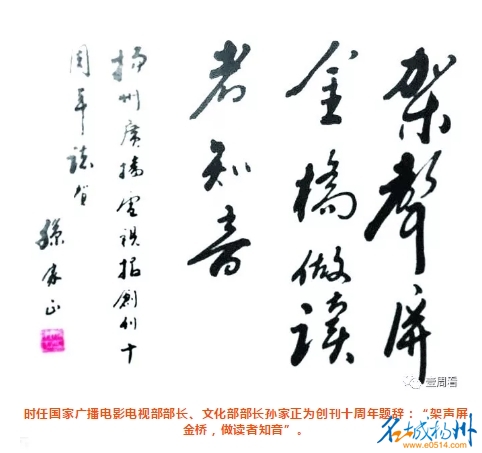 架聲屏
金橋做讀
者知音
揚州廣播電視報創刊十
周年誌賀
孫家正
壹周看
时任国家广播电影电视部部长、文化部部长孙家正为创刊十周年题辞：“架声屏
金桥，做读者知音”。
名城扬州
www.e0514.com